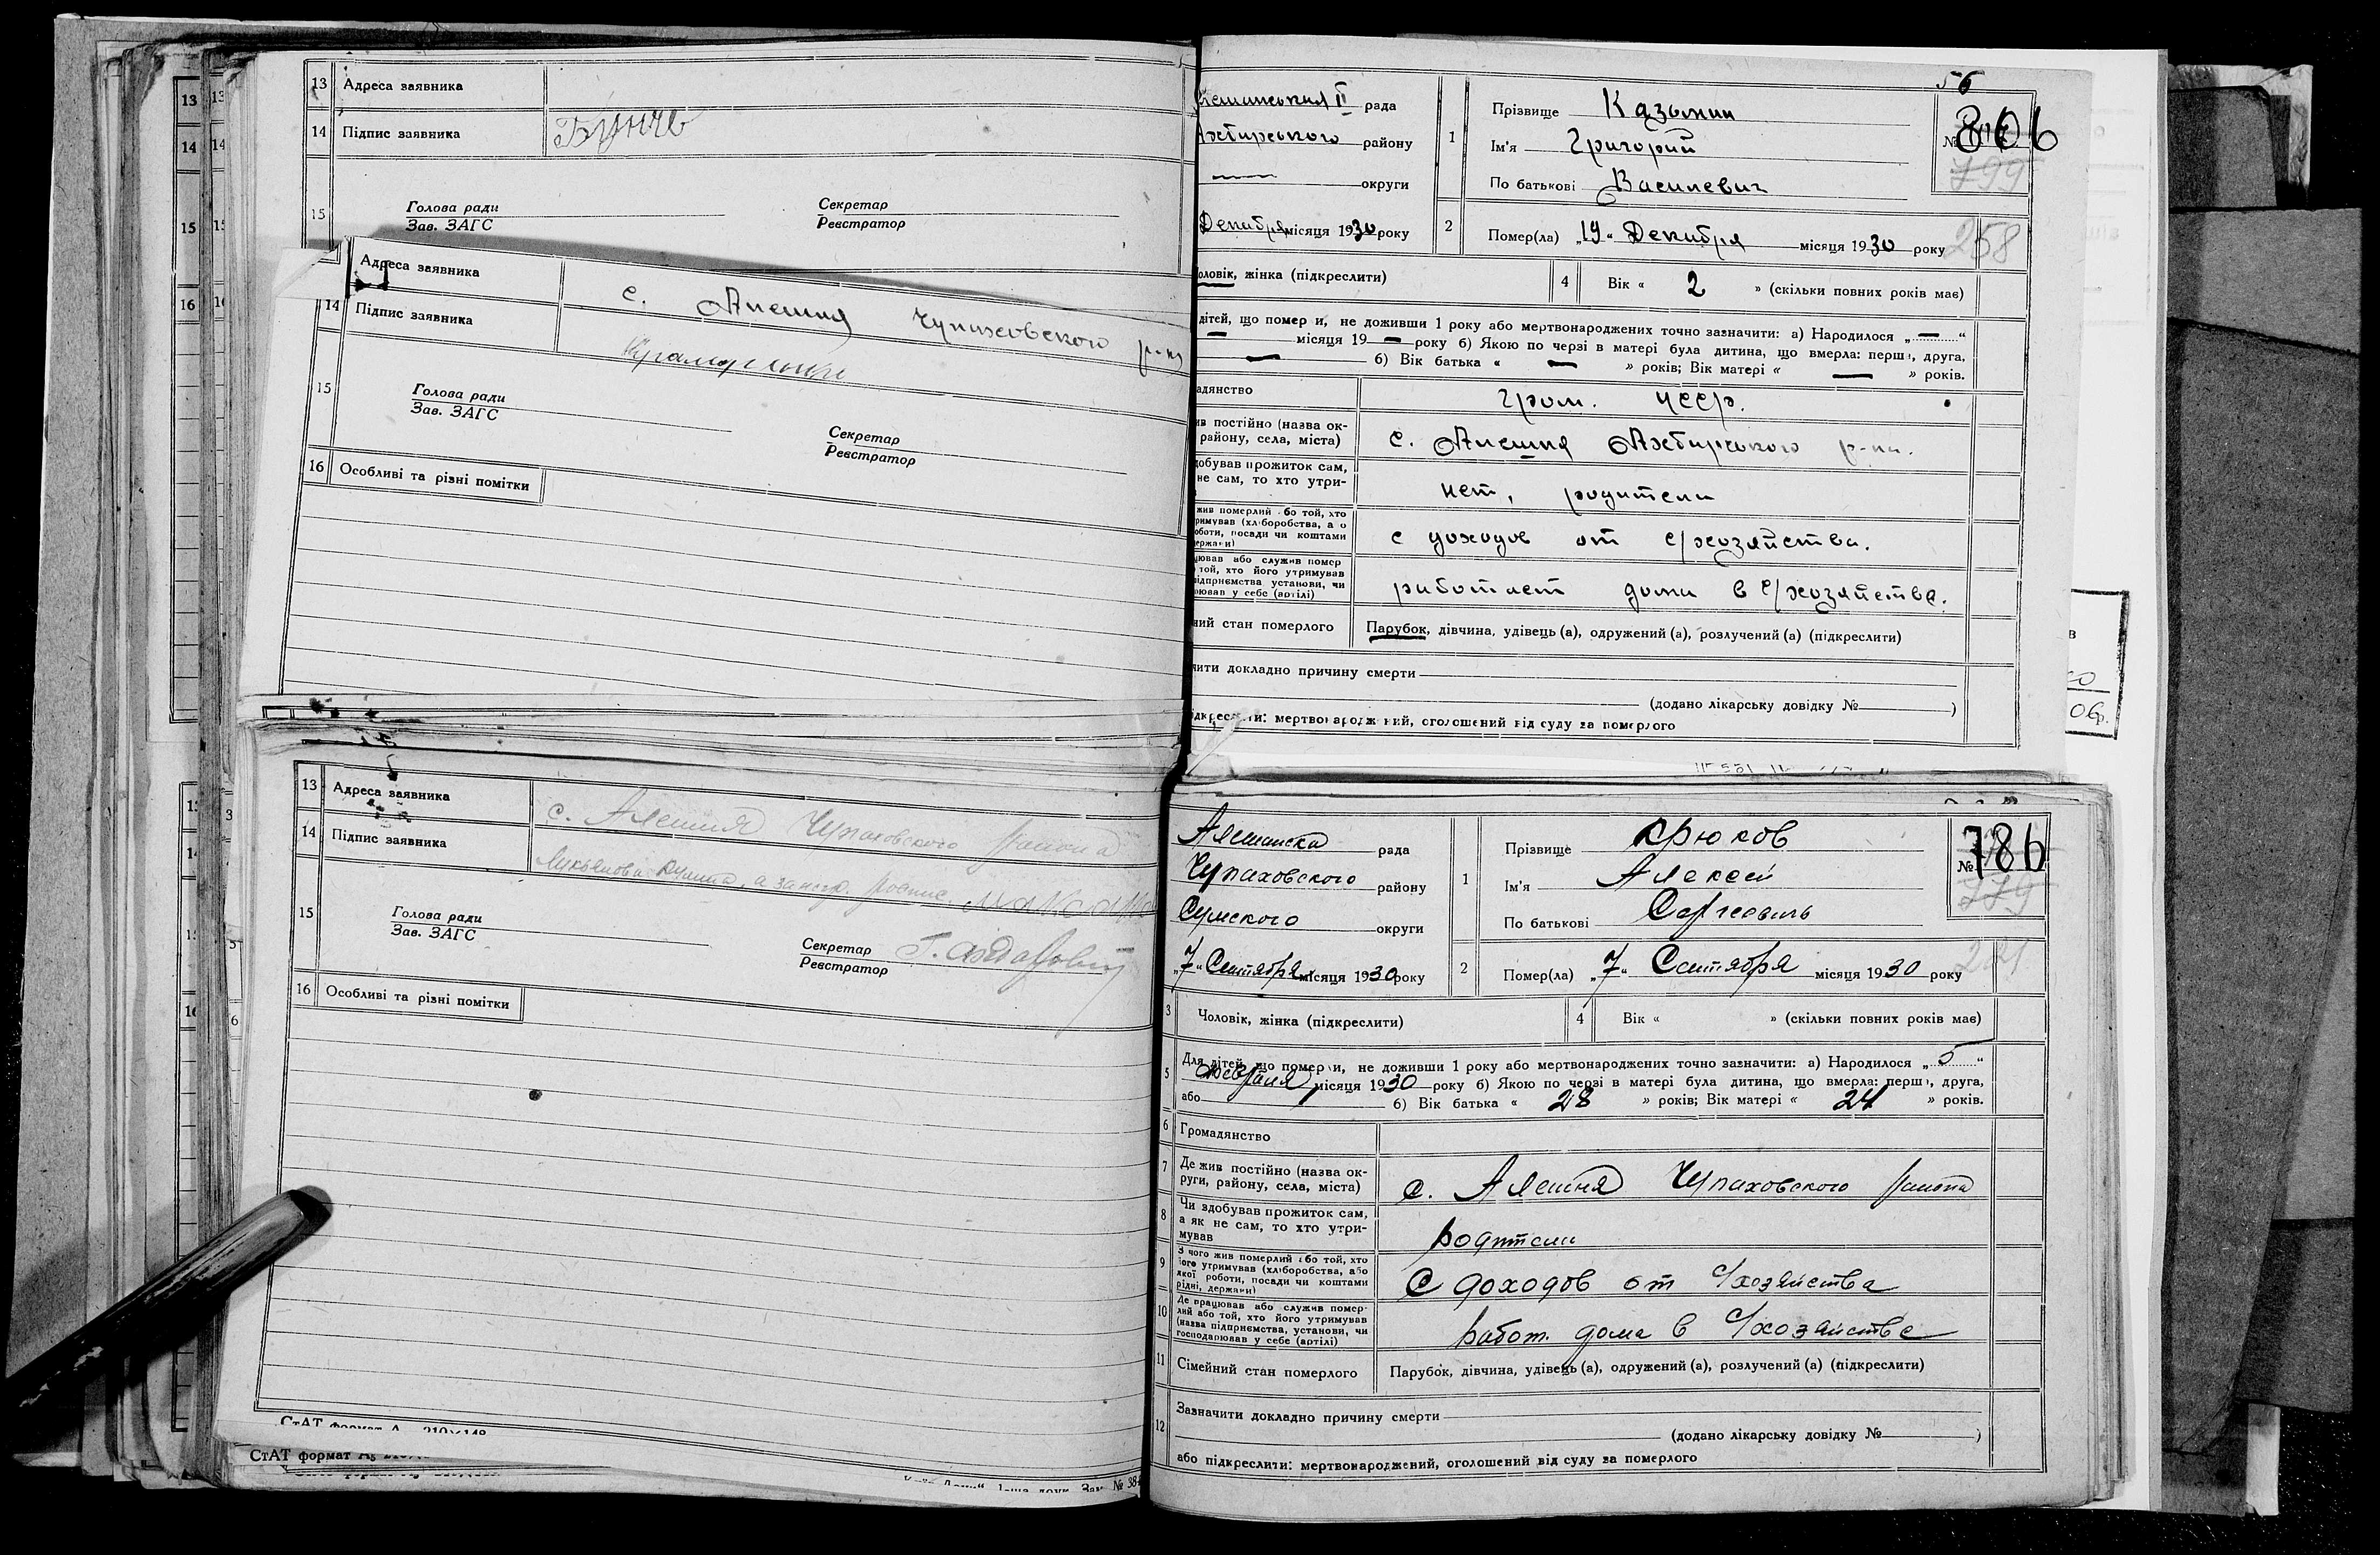 13 Адреса заявника
14 Підпис заявника
15 Голова ради
Зав. ЗАГС
Секретар
Реєстратор
Адреса заявника с. Алешня Чупаховского р-на
14 Підпис заявника
15 Голова ради
Зав. ЗАГС
Секретар
Реєстратор
16 Особливі та різні помітки
13 Адреса заявника с. Алешня Чупаховского района
14 Підпис заявника
15 Голова ради
Зав. ЗАГС
Секретар
Реєстратор
16 Особливі та різні помітки
СтАТ формат А
56
рада
Ахтирського району
округи
Декабря місяця 1930 року
1 Прізвище Казьмин
Ім'я Григорий
По батькові Василевич
№ 806
799
2 Помер(ла) „19“ Декабря місяця 1930 року
258
оловік, жінка (підкреслити)
4 Вік « 2 » (скільки повних років має)
дітей, що померли, не доживши 1 року або мертвонароджених точно зазначити: а) Народилося „ — “
— місяця 19 — року б) Якою по черзі в матері була дитина, що вмерла: перша, друга,
— б) Вік батька « — » років; Вік матері « — » років.
адянство гром. УССР.
ив постійно (назва ок-
району, села, міста) с. Алешня Ахтирського р-на.
добував прожиток сам,
не сам, то хто утри- нет, родители
жив померлий або той, хто
римував (хліборобства, а о
оботи, посади чи коштами
держави) с доходов от с/хозяйства.
цював або служив помер
той, хто його утримував
підприємства установи, чи
рював у себе (артілі) работает дома в с/хозяйстве.
ний стан померлого Парубок, дівчина, удівець (а), одружений (а), розлучений (а) (підкреслити)
чити докладно причину смерти
(додано лікарську довідку № )
ідкреслити: мертвонароджений, оголошений від суду за померлого
Алешанска рада
Чупаховского району
Сумского округи
„7“ Сентября місяця 1930 року
1 Прізвище Крюков
Ім'я Алексей
По батькові Сергеевич
№ 786
779
2 Помер(ла) „7“ Сентября місяця 1930 року
3 Чоловік, жінка (підкреслити)
4 Вік « » (скільки повних років має)
5 Для дітей, що померли, не доживши 1 року або мертвонароджених точно зазначити: а) Народилося „ 5 “
Февраля місяця 1930 року б) Якою по черзі в матері була дитина, що вмерла: перша, друга,
або б) Вік батька « 28 » років; Вік матері « 24 » років.
6 Громадянство
7 Де жив постійно (назва ок-
руги, району, села, міста) с. Алешня Чупаховского района
8 Чи здобував прожиток сам,
а як не сам, то хто утри-
мував родители
9 З чого жив померлий або той, хто
його утримував (хліборобства, або
якої роботи, посади чи коштами
рідні, держави) С доходов от с/хозяйства
10 Де працював або служив помер-
лий або той, хто його утримував
(назва підприємства, установи, чи
господарював у себе (артілі) работ. дома в с/хозяйстве
11 Сімейний стан померлого Парубок, дівчина, удівець (а), одружений (а), розлучений (а) (підкреслити)
12 Зазначити докладно причину смерти
(додано лікарську довідку № )
або підкреслити: мертвонароджений, оголошений від суду за померлого